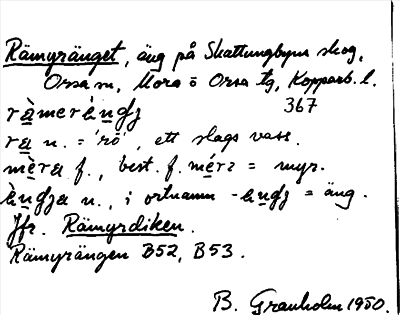 Rämyränget, äng på Skattungbyns skog,
Orsa sn, Mora o Orsa tg, Kopparb. l.
367
ràmerèŋdʒ
ra n. = 'rö', ett slags vass.
mèra f., best. f. mérɛ = myr.
èŋdʒa n., i ortnamn -eŋdʒ = äng.
Jfr. Rämyrdiken.
Rämyrängen B52, B53.
B. Granholm 1950.